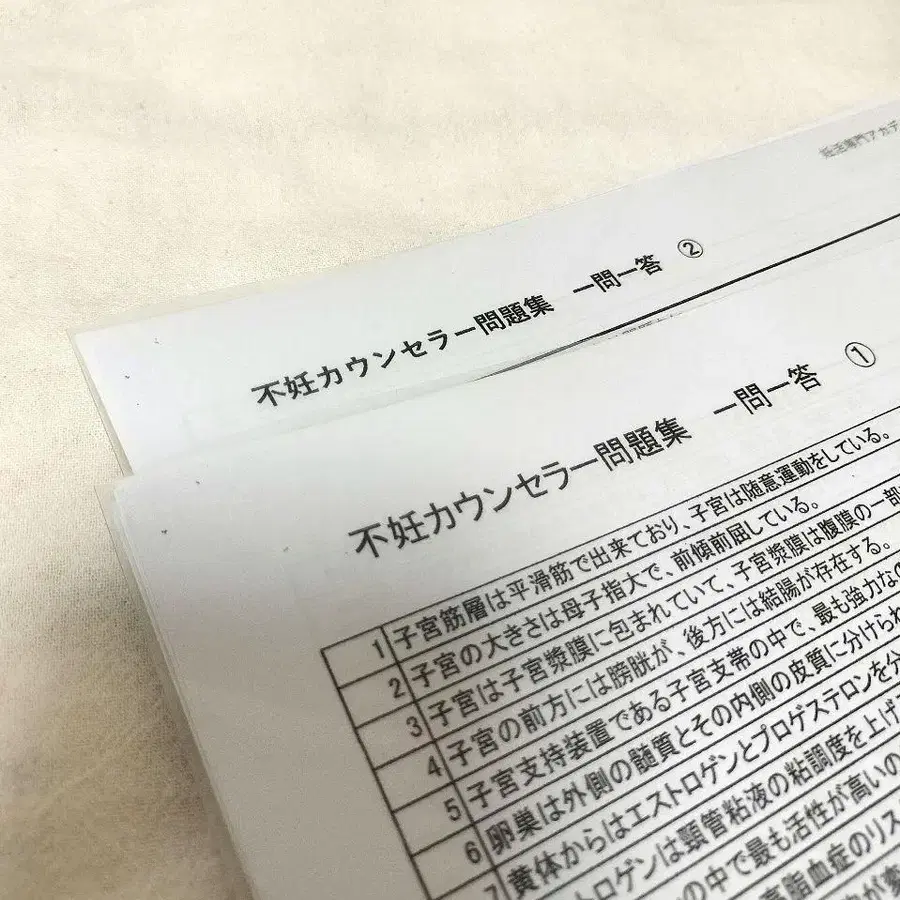 妊活専門アカデ
不妊カウンセラー問題集 一問一答 ②
不妊カウンセラー問題集 一問一答 ①
1 子宮筋層は平滑筋で出来ており、子宮は随意運動をしている。
2 子宮の大きさは母子指大で、前傾前屈している。
3 子宮は子宮漿膜に包まれていて、子宮漿膜は腹膜の一部
4 子宮の前方には膀胱が、後方には結腸が存在する。
5 子宮支持装置である子宮支帯の中で、最も強力なの
6 卵巣は外側の髄質とその内側の皮質に分けられ
7 黄体からはエストロゲンとプロゲステロンを分
ストロゲンは頸管粘液の粘調度を上げ
の中で最も活性が高いの
高脂血症のリス